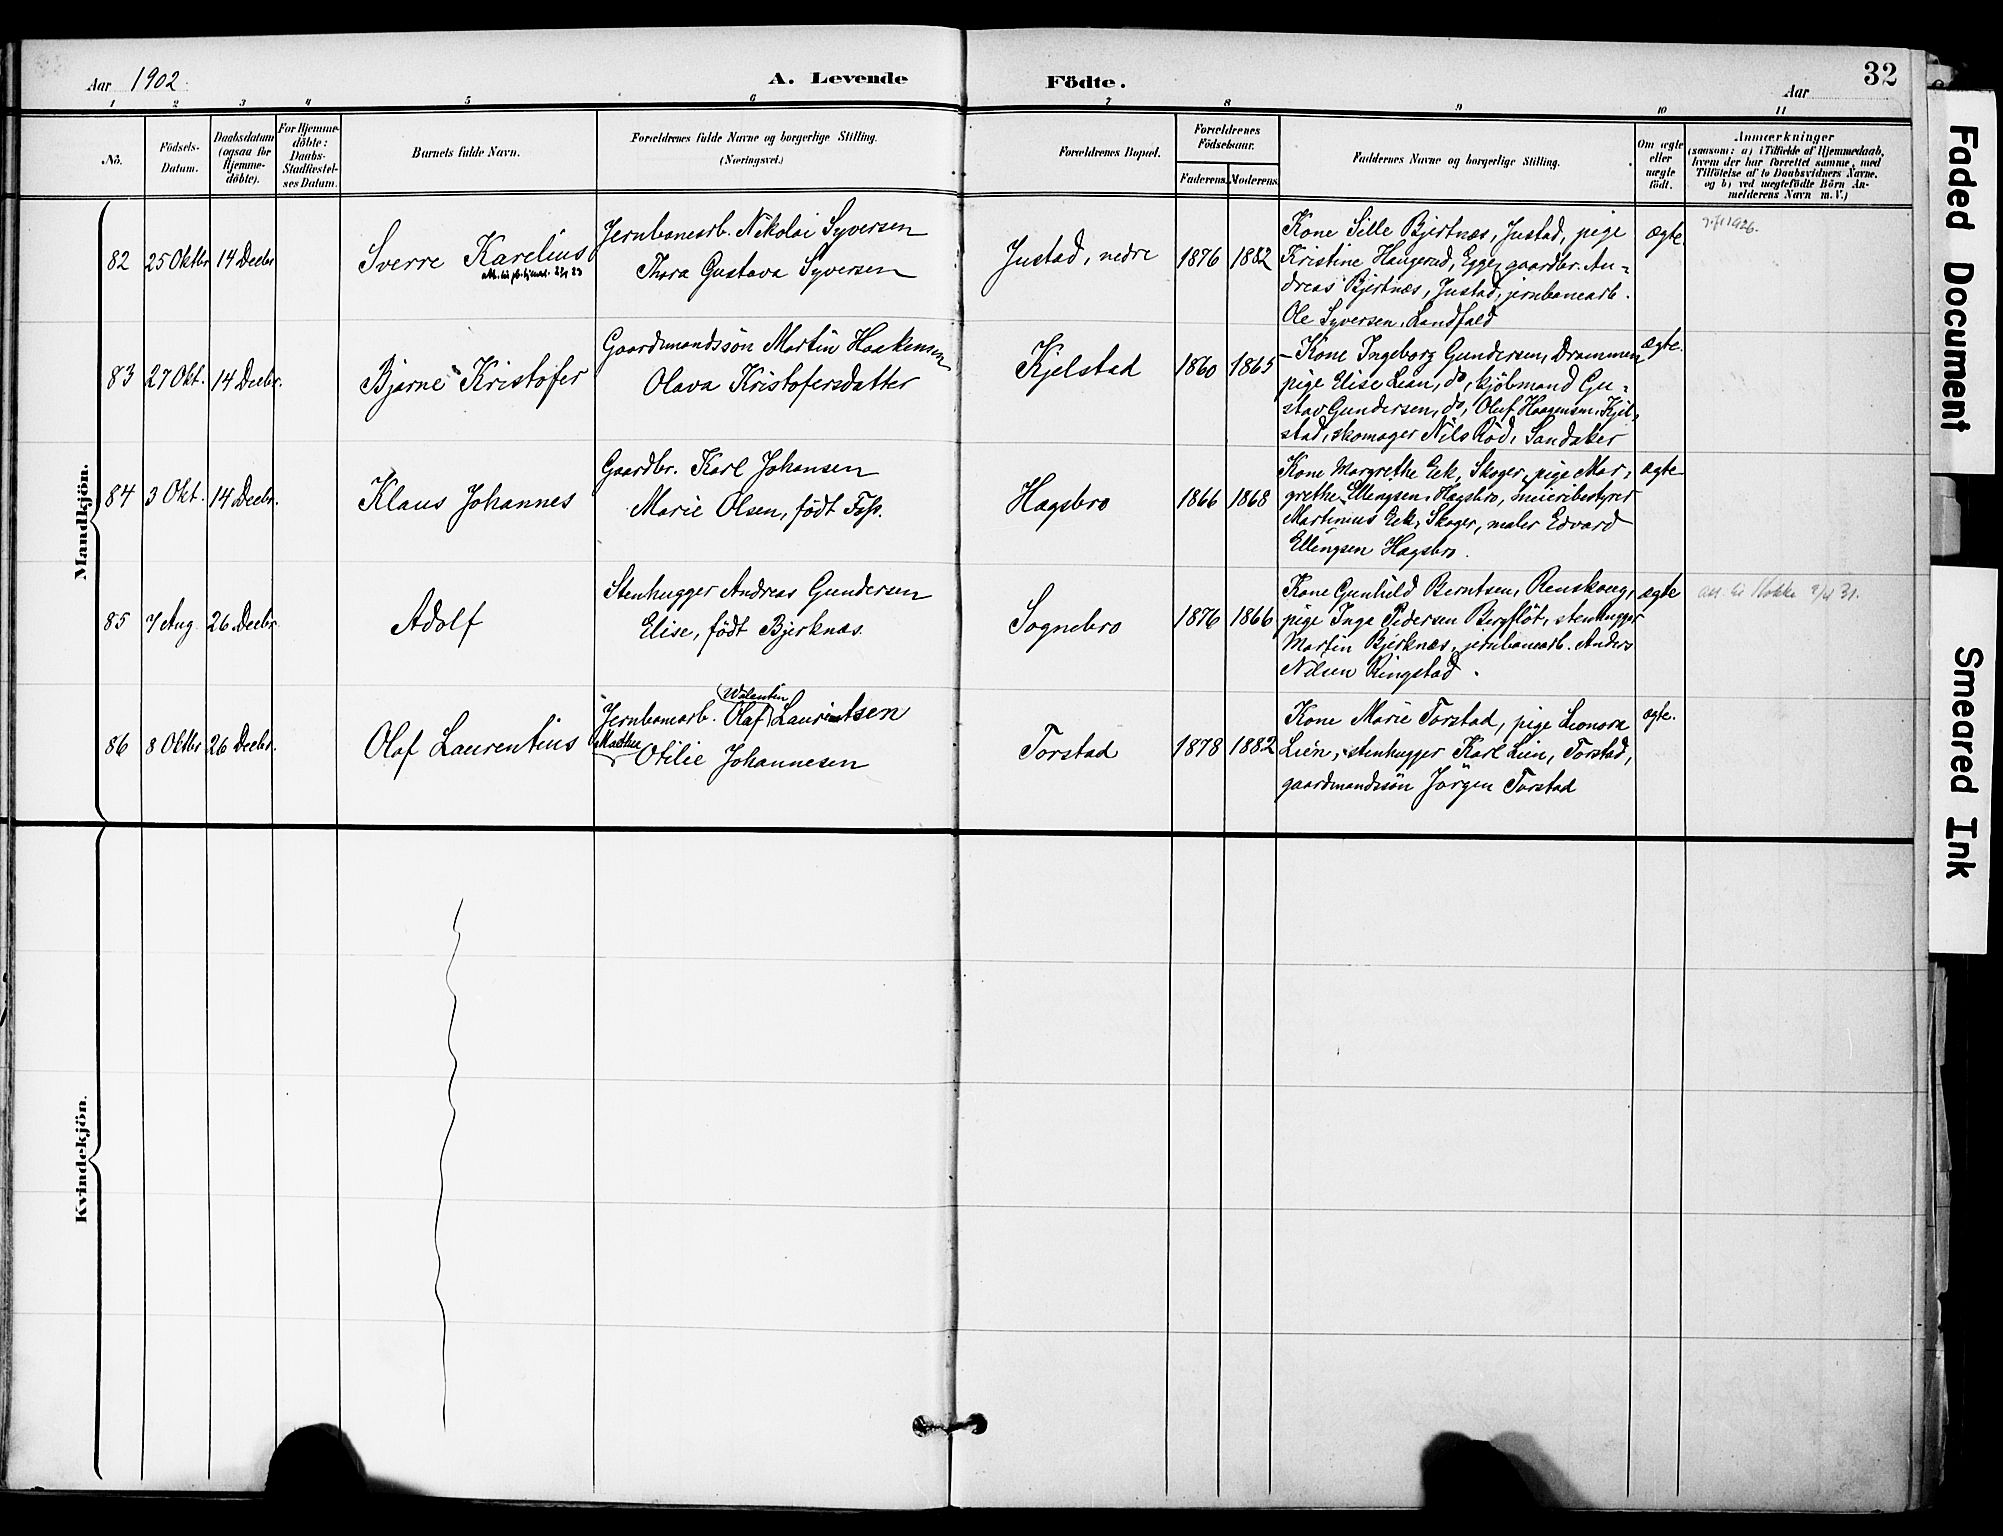 Aar 1902
A. Levende Födte.
Aar
32
1 2 3 4 5 6 7 8 9 10 11
No.
Födsels-
Datum.
Daabsdatum
(ogsaa for
Hjemme-
döbte).
For Hjemme-
döbte:
Daabs-
Stadfæstel-
ses Datum.
Barnets fulde Navn.
Forældrenes fulde Navne og borgerlige Stilling.
(Næringsvei.)
Forældrenes Bopæl.
Forældrenes
Födselsaar.
Faderens. Moderens.
Faddernes Navne og borgerlige Stilling.
Om ægte
eller
uægte
födt.
Anmærkninger
(saasom: a) i Tilfælde af Hjemmedaab,
hvem der har forrettet samme, med
Tilföielse af to Daabsvidners Navne,
og b) ved uægtefödte Börn An-
melderens Navn m. V.)
Mandkjön.
82 25 Oktbr 14 Decbr
Sverre Karelius
Jernbanearb. Nikolai Syversen
Thora Gustava Syversen
Justad, nedre
1876 1882
Kone Sille Bjertnæs, Justad, pige
Kristine Haugerud, Egge, gaardbr. An-
dreas Bjertnæs, Justad, jernbanearb.
Ole Syversen, Landfald
ægte.
1926.
83 27 Okt. 14 Decbr.
Bjarne Kristofer
Gaardmandssön Martin Haakensen
Olava Kristofersdatter
Kjelstad
1860 1865
Kone Ingeborg Gundersen, Drammen
pige Elise Lian, do, kjöbmand Gu-
stav Gundersen, do, Oluf Haagensen, Kjel-
stad, skomager Nils Röd, Sandaker
ægte.
84 3 Okt. 14 Decbr.
Klaus Johannes
Gaardbr. Karl Johansen
Marie Olsen, födt Foss.
Hagsbro
1866 1868
Kone Margrethe Eek, Skoger, pige Mar-
grethe Ellengsen, Hagsbro, meieribestyrer
Martinius Eek, Skoger, maler Edvard
Ellengsen Hagsbro.
ægte
85 7 Aug. 26 Decbr.
Adolf
Stenhugger Andreas Gundersen
Elise, födt Bjerknæs.
Sognebro
1876 1866
Kone Gunhild Berntsen, Renskoug,
pige Inga Pedersen Bergflöt, stenhugger
Martin Bjerknæs, jernbanearb. Anders
Nilsen Ringstad.
ægte
86 8 Oktbr 26 Decbr.
Olaf Laurentius
Walentin
Jernbanearb. Olaf Laurentsen
Mathea
Otilie Johannesen
Torstad
1878 1882
Kone Marie Torstad, pige Leonora
Lien, stenhugger Karl Lien, Torstad,
gaardmandssön Jörgen Torstad
ægte.
Kvindekjön.
Faded Document
Smeared Ink